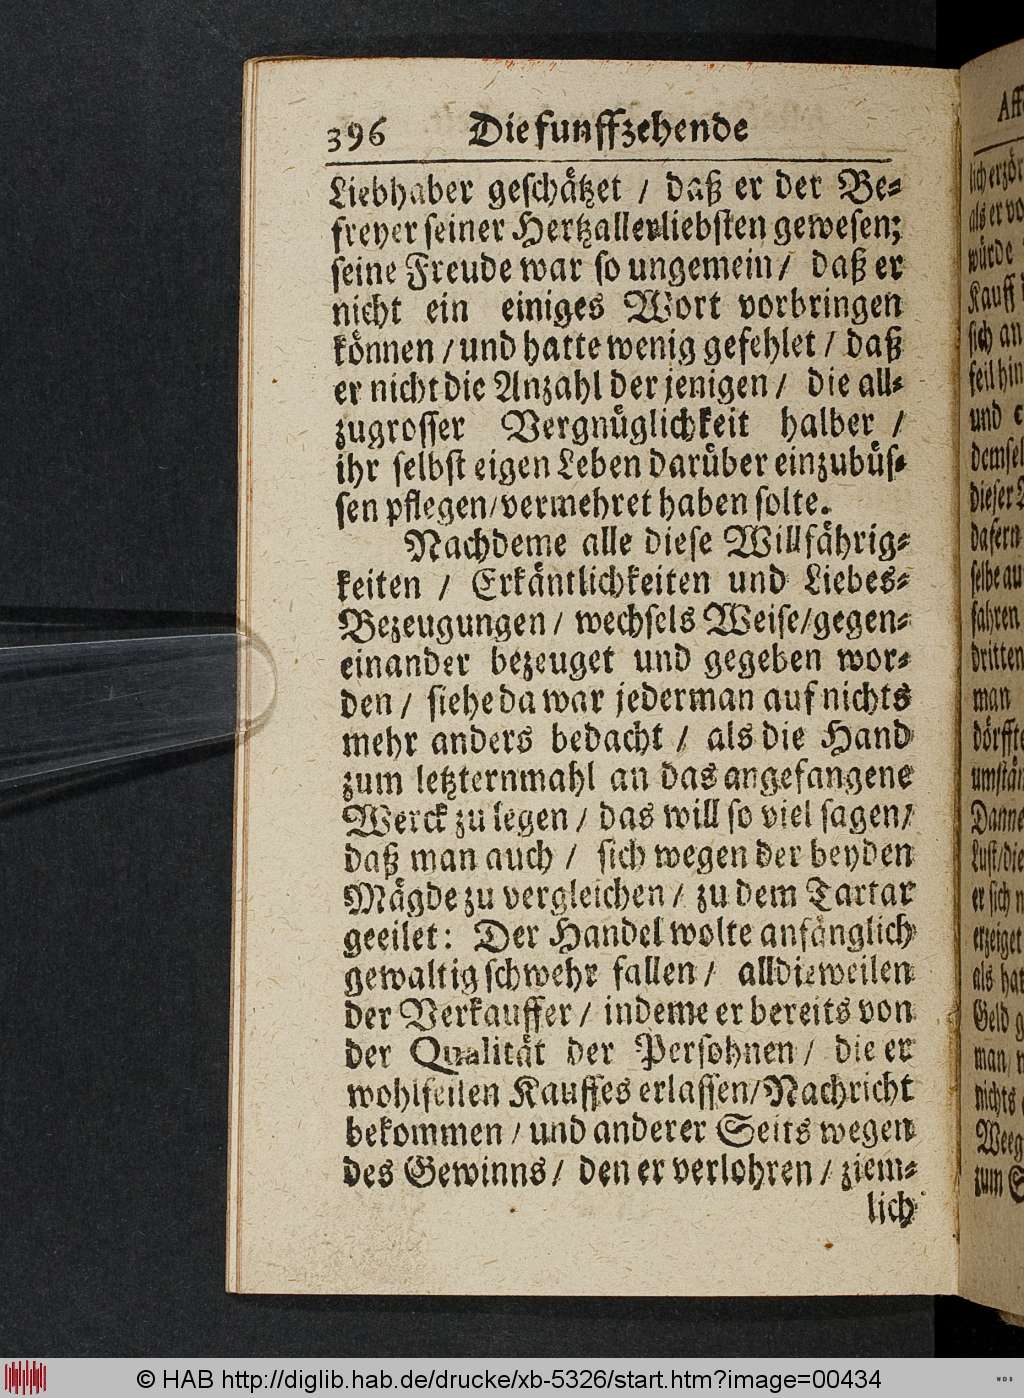 396 Die funffzehende
Liebhaber geschätzet / daß er der Be-
freyer seiner Hertzallerliebsten gewesen;
seine Freude war so ungemein / daß er
nicht ein einiges Wort vorbringen
können / und hatte wenig gefehlet / daß
er nicht die Anzahl der jenigen / die all-
zugrosser Vergnüglichkeit halber /
ihr selbst eigen Leben darüber einzubüs-
sen pflegen / vermehret haben solte.
Nachdeme alle diese Willfährig-
keiten / Erkäntlichkeiten und Liebes-
Bezeugungen / wechsels Weise / gegen-
einander bezeuget und gegeben wor-
den / siehe da war jederman auf nichts
mehr anders bedacht / als die Hand
zum letzternmahl an das angefangene
Werck zu legen / das will so viel sagen /
daß man auch / sich wegen der beyden
Mägde zu vergleichen / zu dem Tartar
geeilet: Der Handel wolte anfänglich
gewaltig schwehr fallen / alldieweilen
der Verkauffer / indeme er bereits von
der Qualität der Persohnen / die er
wohlfeilen Kauffes erlassen / Nachricht
bekommen / und anderer Seits wegen
des Gewinns / den er verlohren / ziem-
lich
Aff
lich erzör
als er vo
würde
Kauff
sich an
feil hin
und
demsel
dieser L
dafern
selbe au
fahren
dritten
man
dörffte
umstän
Danne
Lust / die
er sich n
erzeiget
als hat
Geld g
man /
nichts
Weeg
zum S
© HAB http://diglib.hab.de/drucke/xb-5326/start.htm?image=00434